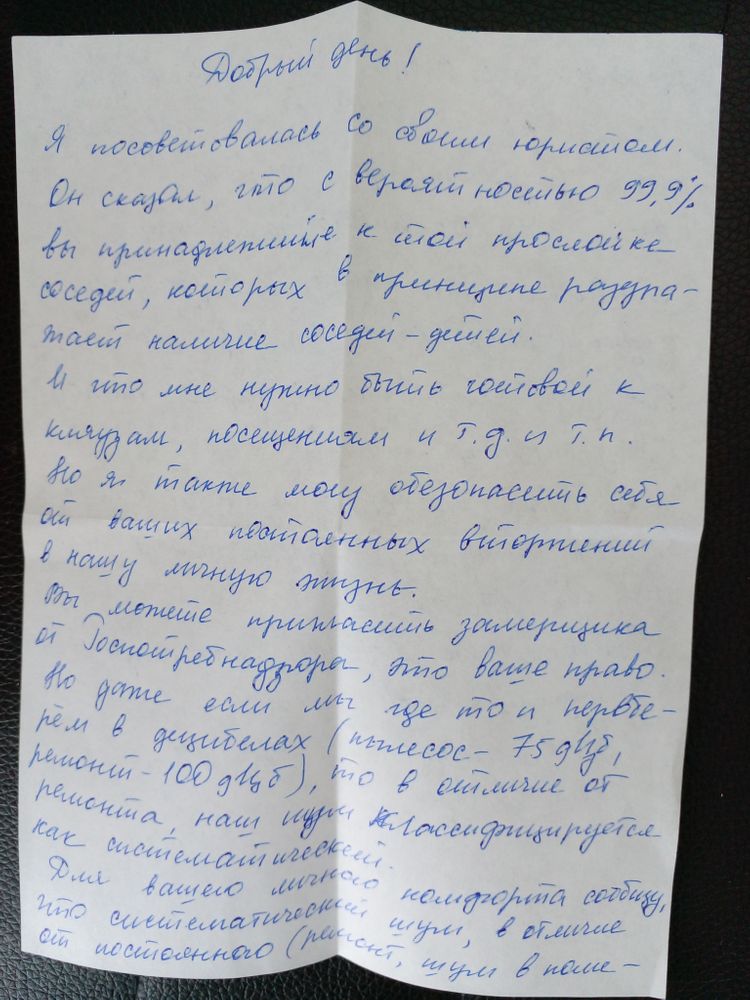 Добрый день!
Я посоветовалась со своим юристом.
Он сказал, что с вероятностью 99,9%
вы принадлежите к той прослойке
соседей, которых в принципе раздра-
жает наличие соседей-детей.
И что мне нужно быть готовой к
кляузам, посещениям и т.д. и т.п.
Но я также могу обезопасить себя
от ваших постоянных вторжений
в нашу личную жизнь.
Вы можете пригласить замерщика
от Роспотребнадзора, это ваше право.
Но даже если мы где то и перебе-
рём в децибелах (пылесос - 75 дЦб,
ремонт - 100 дЦб), то в отличие от
ремонта, наш шум классифицируется
как систематический.
Для вашего личного комфорта сообщу,
что систематический шум, в отличие
от постоянного (ремонт, шум в поме-